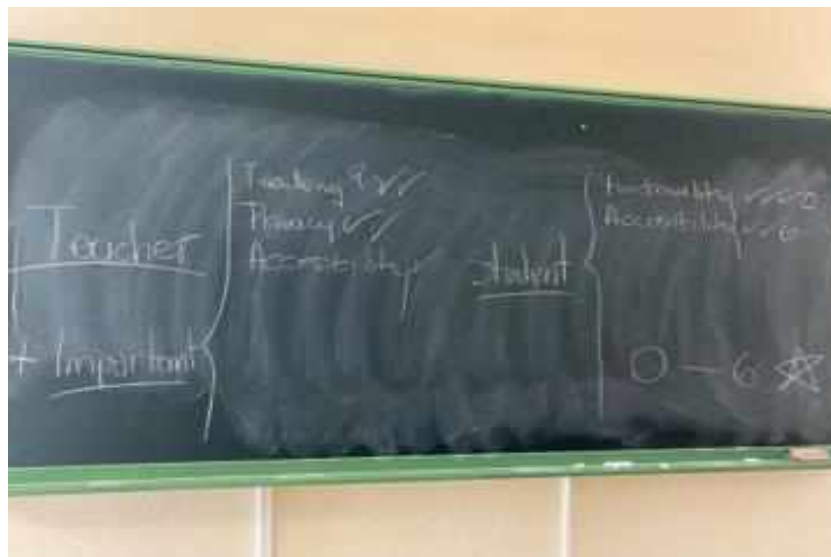 Teacher
+ Important
Tracking
Privacy ✓✓
Accessibility ✓
Student
Functionality
Accessibility
0 — 6 ☆